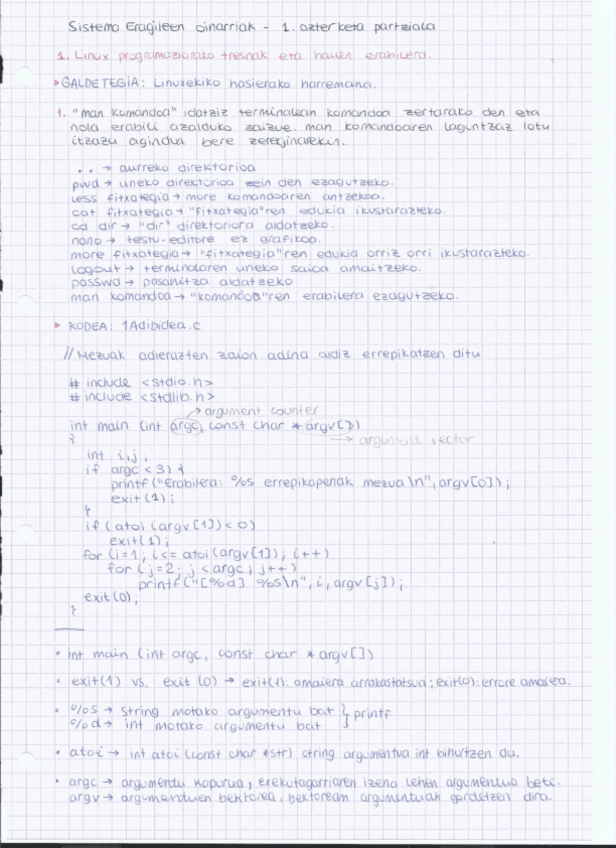 Sistema Eragileen oinarriak - 1. azterketa partziala
1. Linux programaziorako tresnak eta hauen erabilera.
▸GALDETEGIA: Linuxekiko hasierako harremana.
1. "man komandoa" idatziz terminalean komandoa zertarako den eta
nola erabili azalduko zaizue. man komandoaren laguntzaz lotu
itzazu agindua bere zereginarekin.
.. → aurreko direktorioa
pwd → uneko direktorioa zein den ezagutzeko.
less fitxategia → more komandoaren antzekoa.
cat fitxategia → "fitxategia"ren edukia ikustarazteko.
cd dir → "dir" direktoriora aldatzeko.
nano → testu-editore ez grafikoa.
more fitxategia → "fitxategia"ren edukia orriz orri ikustarazteko.
logout → terminalaren uneko saioa amaitzeko.
passwd → pasahitza aldatzeko
man komandoa → "komandoa"ren erabilera ezagutzeko.
▸ KODEA: 1Adibidea.c
// Mezuak adierazten zaion adina aldiz errepikatzen ditu
# include <stdio.h>
# include <stdlib.h>
→ argument counter
int main (int argc, const char * argv[])
{
→ argument vector
int i,j;
if argc < 3) {
printf("Erabilera: %s errepikapenak mezua \n", argv[0]);
exit(1);
}
if (atoi (argv[1]) < 0)
exit(1);
for (i=1; i <= atoi(argv[1]); i++)
for (j=2; j < argc; j++)
printf("[%d] %s\n", i, argv[j]);
exit(0);
}
• int main (int argc, const char * argv[])
• exit(1) vs. exit (0) → exit(1): amaiera arrakastatsua; exit(0): errore amaiera.
• %s → string motako argumentu bat } printf
%d → int motako argumentu bat
• atoi → int atoi (const char *str) string argumentua int bihurtzen du.
• argc → argumentu kopurua, exekutagarriaren izena lehen argumentua beti.
argv → argumentuen bektorea, bektorean argumentuak gordetzen dira.